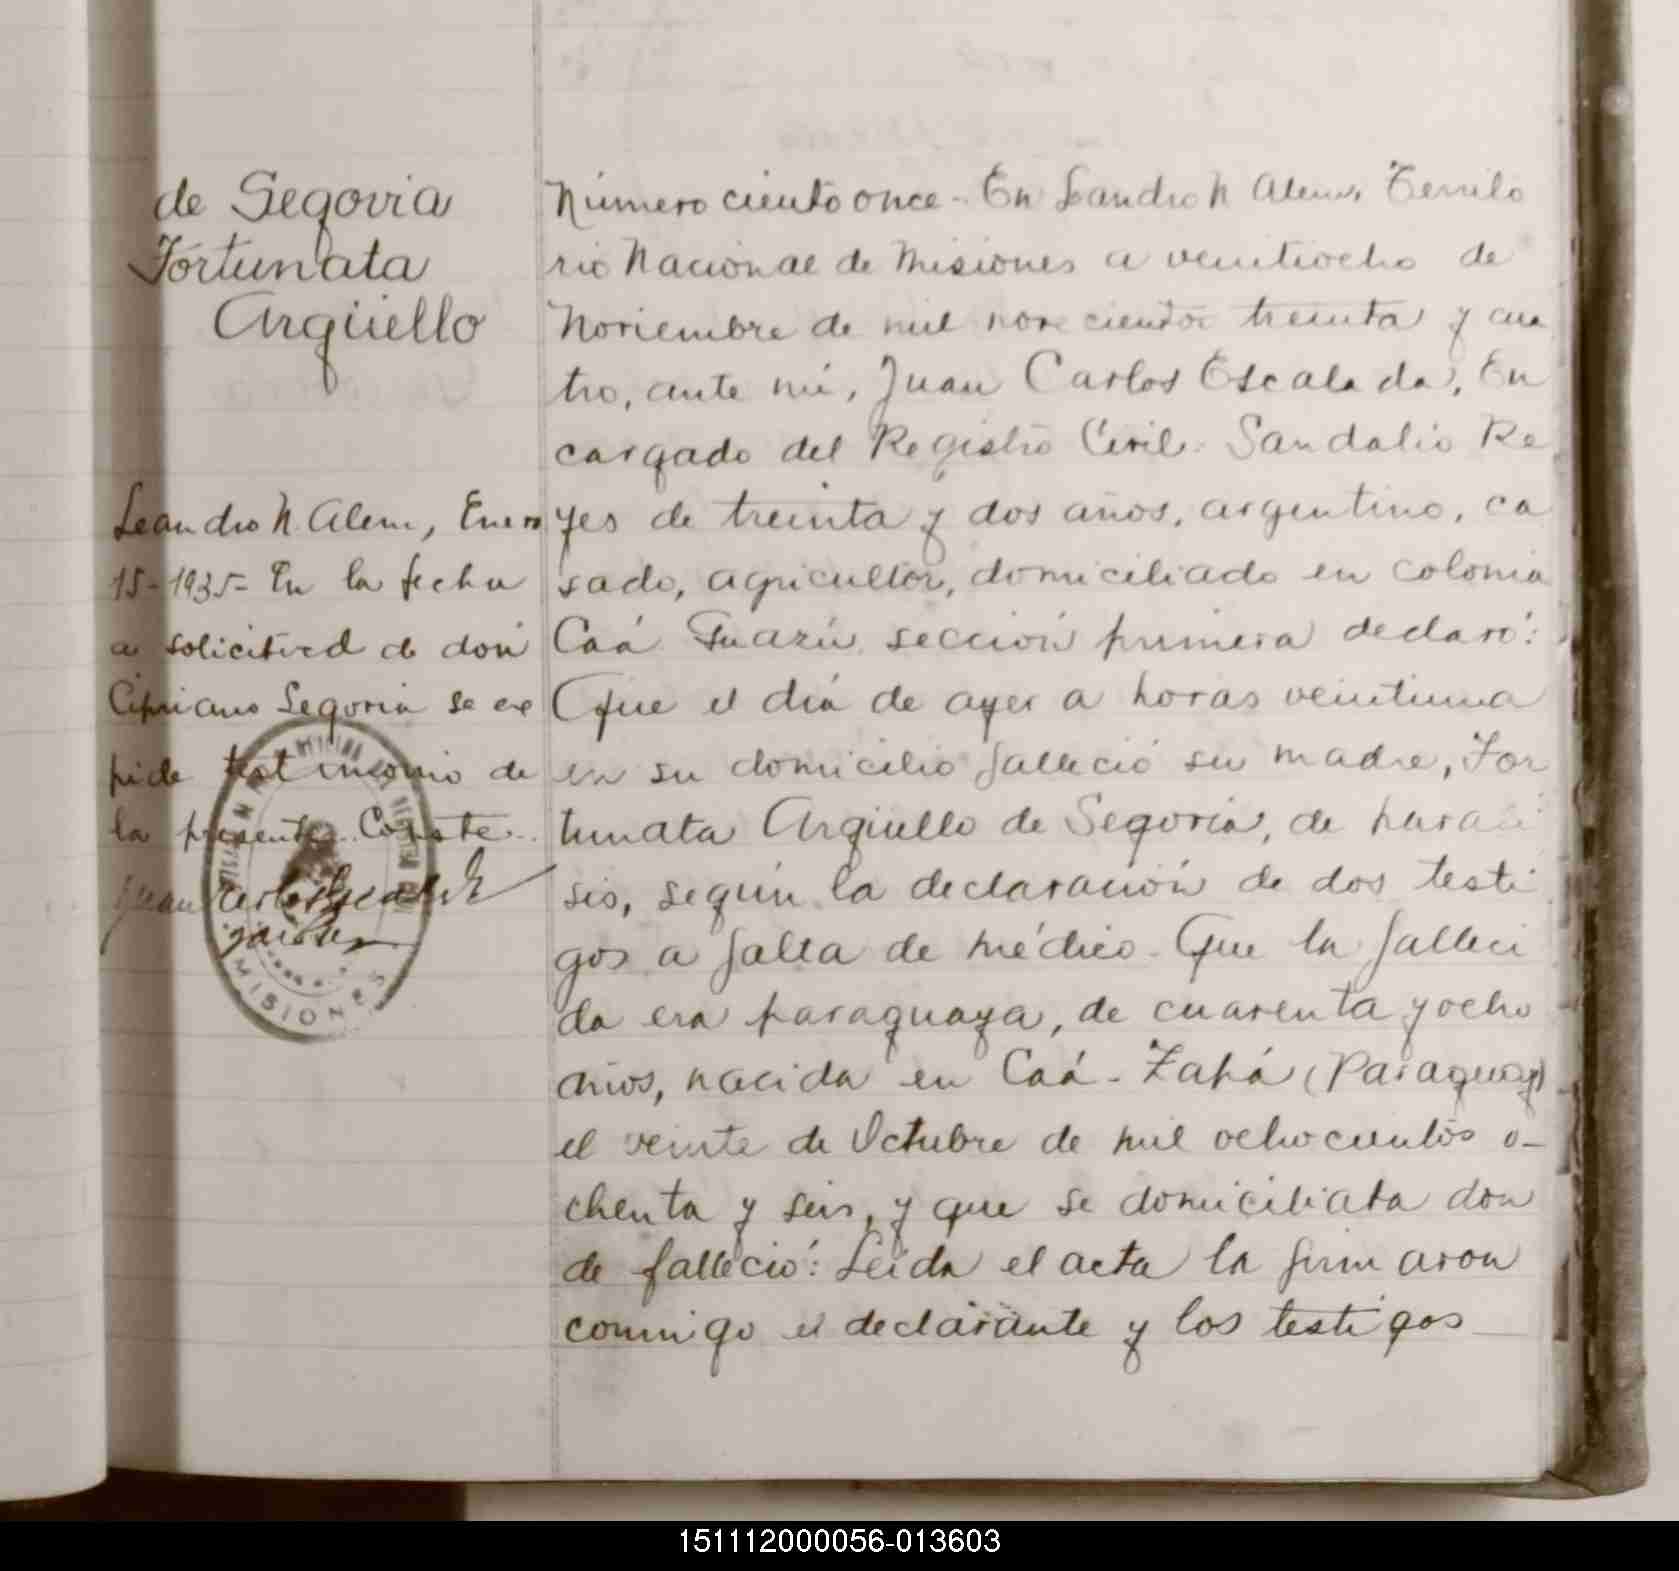 de Segovia
Fortunata
Argüello
Leandro N. Alem, Enero
15-1935- En la fecha
a solicitud de don
Cipriano Segovia se ex
pide testimonio de
la presente. Conste.
Juan Carlos Escalada
MISIONES
Número ciento once - En Leandro N Alem, Territo
rio Nacional de Misiones a veintiocho de
Noviembre de mil novecientos treinta y cua
tro, ante mí, Juan Carlos Escalada, En
cargado del Registro Civil: Sandalio Re
yes de treinta y dos años, argentino, ca
sado, agricultor, domiciliado en colonia
Caá Guazú sección primera declaró:
Que el día de ayer a horas veintiuna
en su domicilio falleció su madre, For
tunata Argüello de Segovia, de paráli
sis, según la declaración de dos testi
gos a falta de médico - Que la falleci
da era paraguaya, de cuarenta y ocho
años, nacida en Caá-Zapá (Paraguay)
el veinte de Octubre de mil ochocientos o-
chenta y seis, y que se domiciliaba don
de falleció: Leída el acta la firmaron
conmigo el declarante y los testigos
151112000056-013603